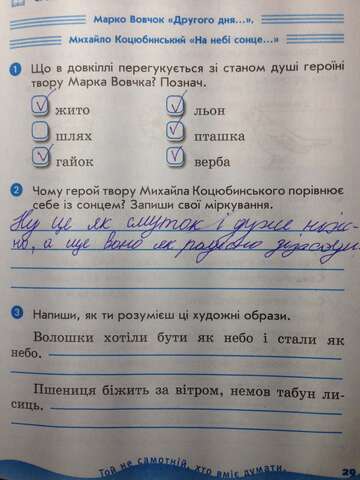 Марко Вовчок «Другого дня...».
Михайло Коцюбинський «На небі сонце...»
1 Що в довкіллі перегукується зі станом душі героїні
твору Марка Вовчка? Познач.
жито льон
шлях пташка
гайок верба
2 Чому герой твору Михайла Коцюбинського порівнює
себе із сонцем? Запиши свої міркування.
Ну це як смуток і дуже ніж-
но, а ще воно як радісно
3 Напиши, як ти розумієш ці художні образи.
Волошки хотіли бути як небо і стали як
небо.
Пшениця біжить за вітром, немов табун ли-
сиць.
Той не самотній, хто вміє думати.
29